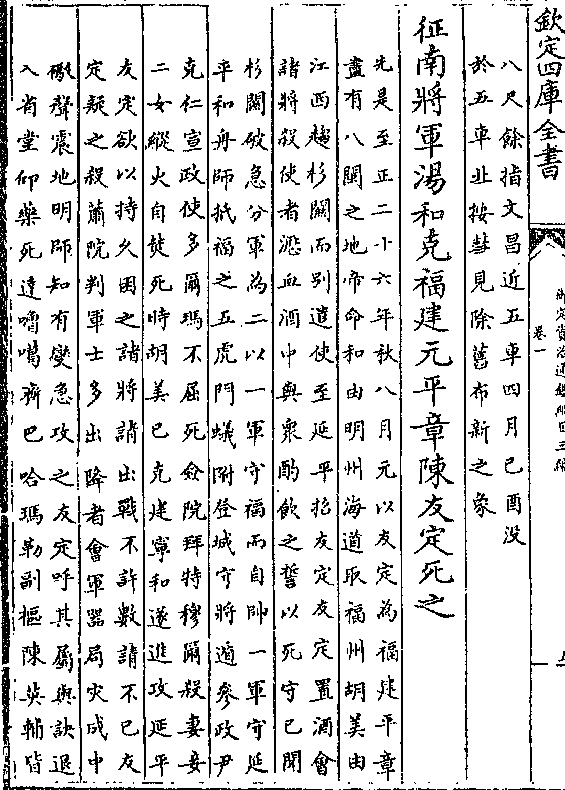 欽定四庫全書
御定資治通鑑綱目三編
卷一
八尺餘指文昌近五車四月己酉没
於五車北按彗見除舊布新之象
征南將軍湯和克福建元平章陳友定死之
先是至正二十六年秋八月元以友定為福建平章
盡有八閩之地帝命和由明州海道取福州胡美由
江西趨杉關而别遣使至延平招友定友定置酒會
諸將殺使者瀝血酒中與衆酌飲之誓以死守已聞
杉關破急分軍為二以一軍守福而自帥一軍守延
平和舟師抵福之五虎門蟻附登城守將遁參政尹
克仁宣政使多爾瑪不屈死僉院拜特穆爾殺妻妾
二女縱火自焚死時胡美已克建寧和遂進攻延平
友定欲以持久困之諸將請出戰不許數請不已友
定疑之殺蕭院判軍士多出降者會軍器局災城中
礮聲震地明師知有變急攻之友定呼其屬與訣退
入省堂仰藥死達嚕噶齊巴哈瑪勒副樞陳英輔皆